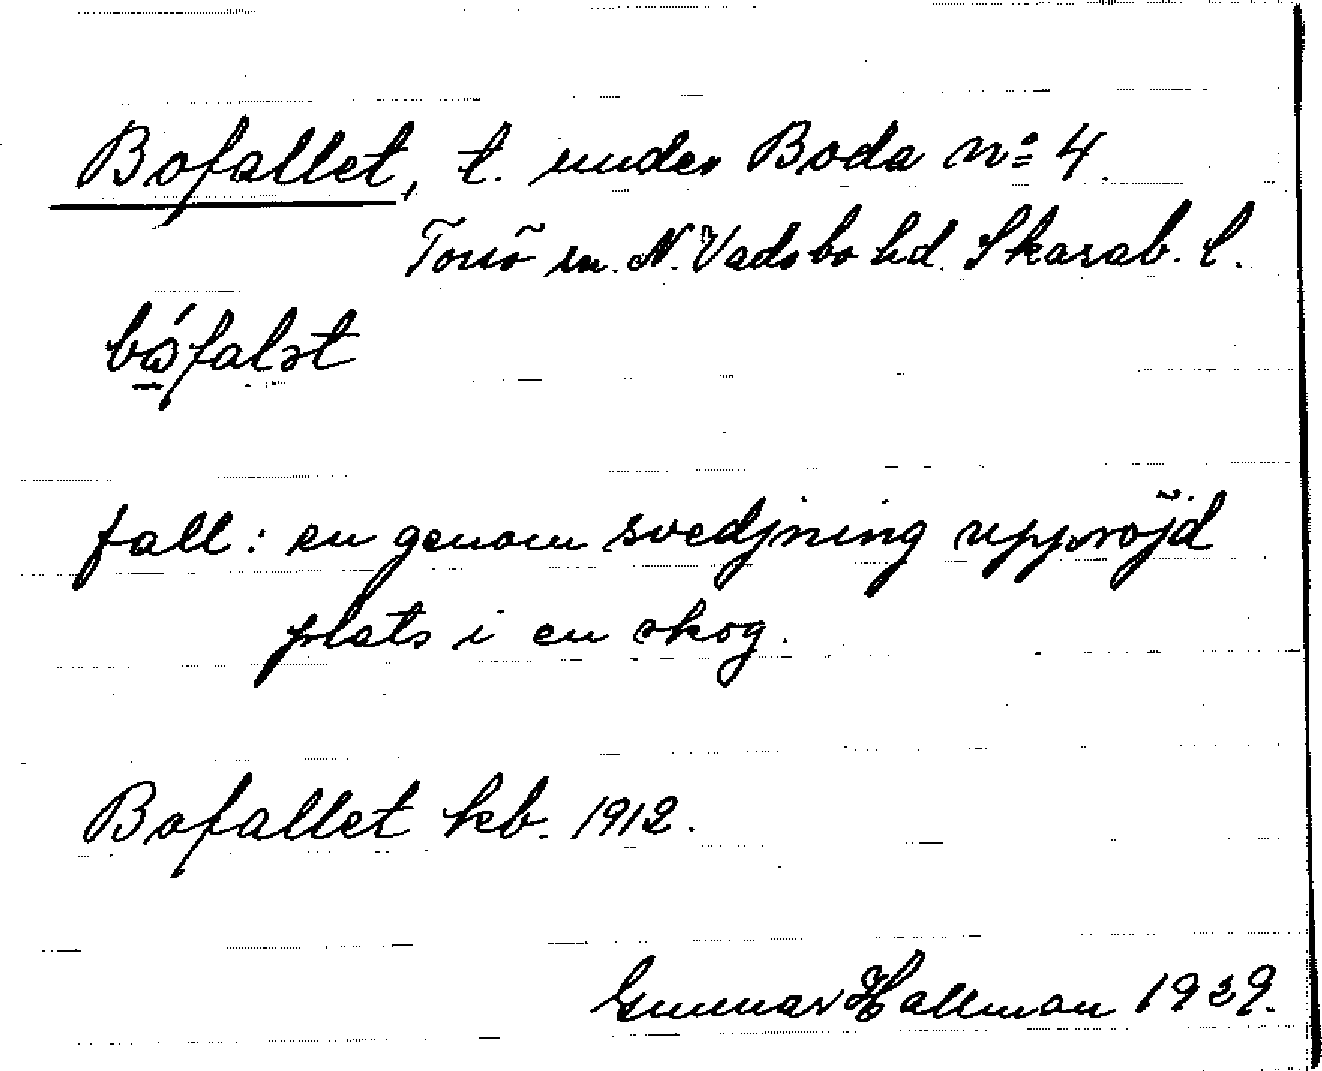 Bofallet, t. under Boda No 4.
Torsö sn. N. Vadsbo hd. Skarab. l.
bó̲falət
fall: en genom svedjning uppröjd
plats i en skog.
Bofallet kb. 1912.
Gunnar Hallman 1929.